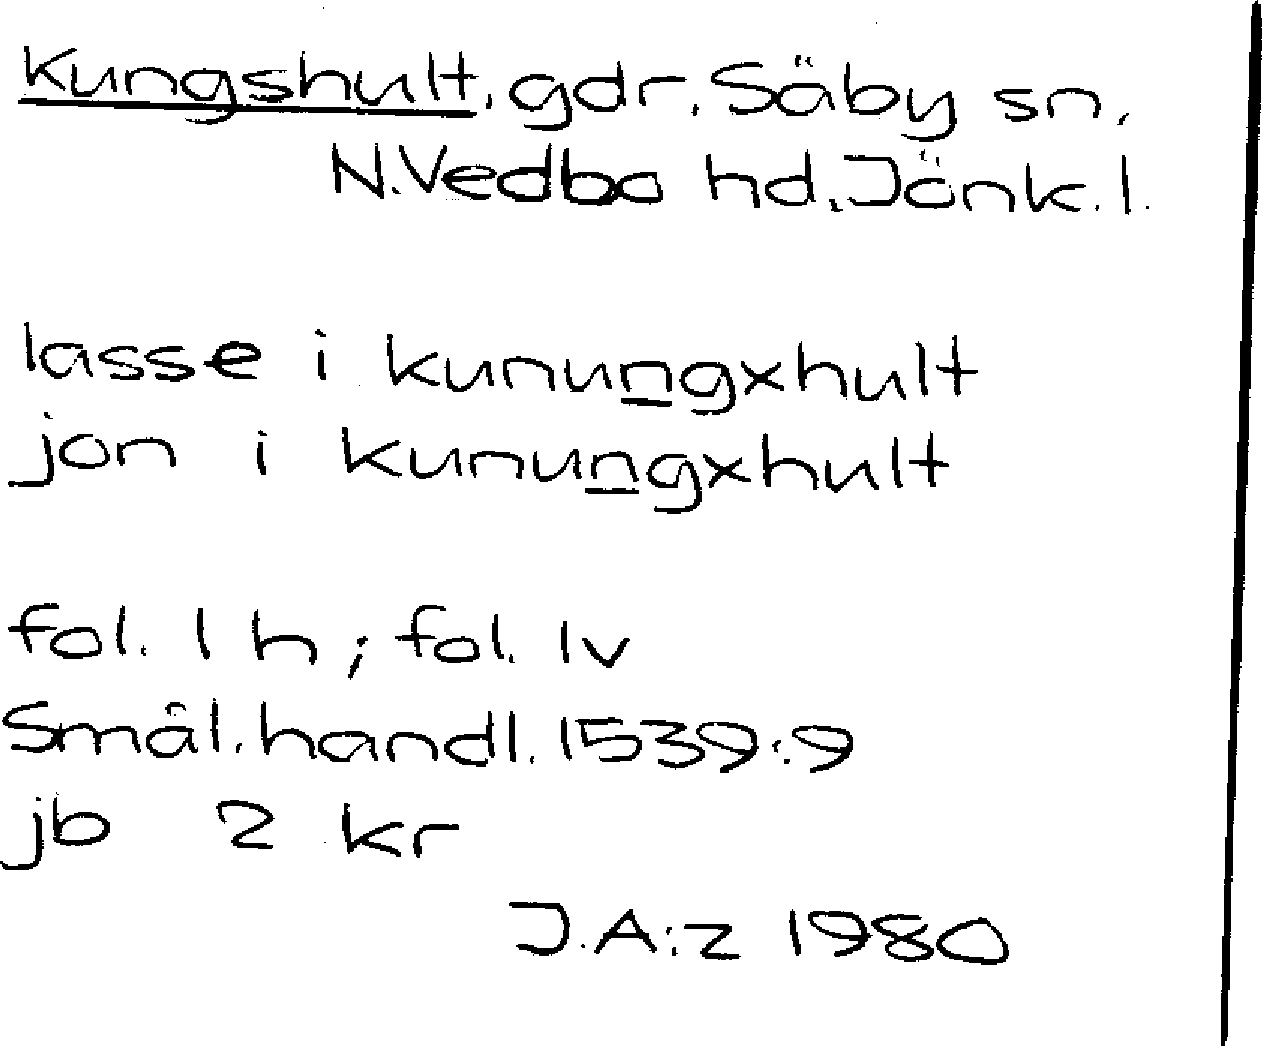 Kungshult, gdr, Säby sn,
N.Vedbo hd, Jönk.l.
lasse i kunungxhult
jon i kunungxhult
fol. 1 h; fol. 1v
Smål.handl. 1539:9
jb 2 kr
J.A:z 1980